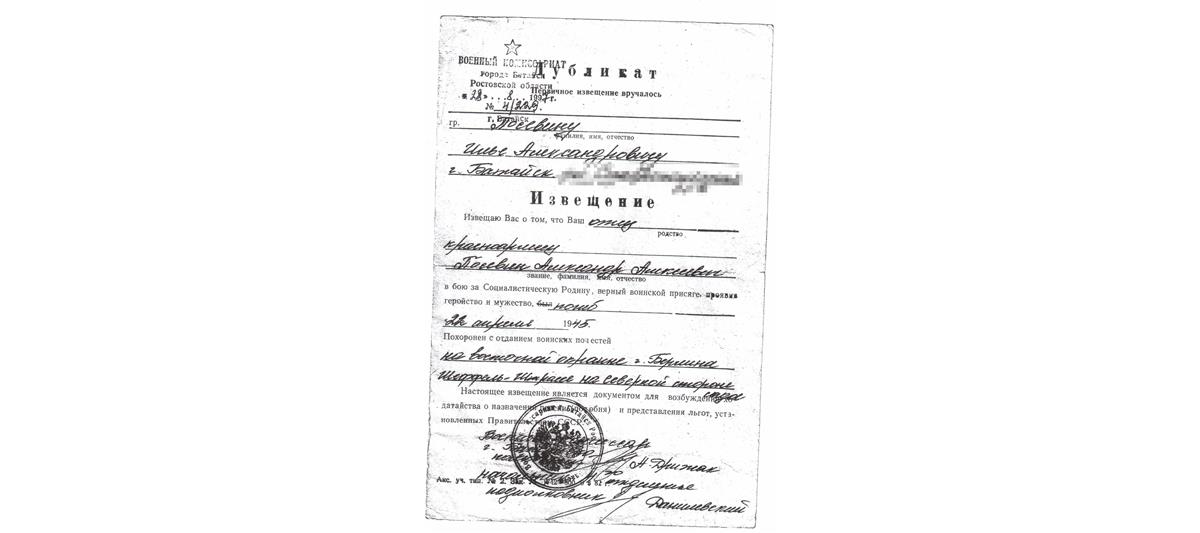 ВОЕННЫЙ КОМИССАРИАТ
города Батайск
Ростовской области
Дубликат
Первичное извещение вручалось
"28" 8 1997г.
№ 4/229.
г. Батайск
гр. Посевину
фамилия, имя, отчество
Илье Александровичу
г. Батайск
Извещение
Извещаю Вас о том, что Ваш отец
родство
красноармеец
Посевин Александр Алексеевич
звание, фамилия, имя, отчество
в бою за Социалистическую Родину, верный воинской присяге, проявив
геройство и мужество, был погиб
22 апреля 1945.
Похоронен с отданием воинских почестей
на восточной окраине г. Берлина
Шеффель-Штрассе на северной стороне
Настоящее извещение является документом для возбуждения
датайства о назначении пенсии (пособия) и представления льгот, уста-
новленных Правительством СССР
Военный комиссар
г. Батайска
А Дрижак
начальник отделения
подполковник Данилевский
Акс. уч. тип. № 2.